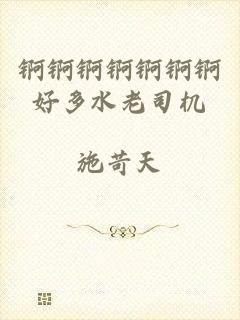 锕锕锕锕锕锕锕
好多水老司机
施苛天